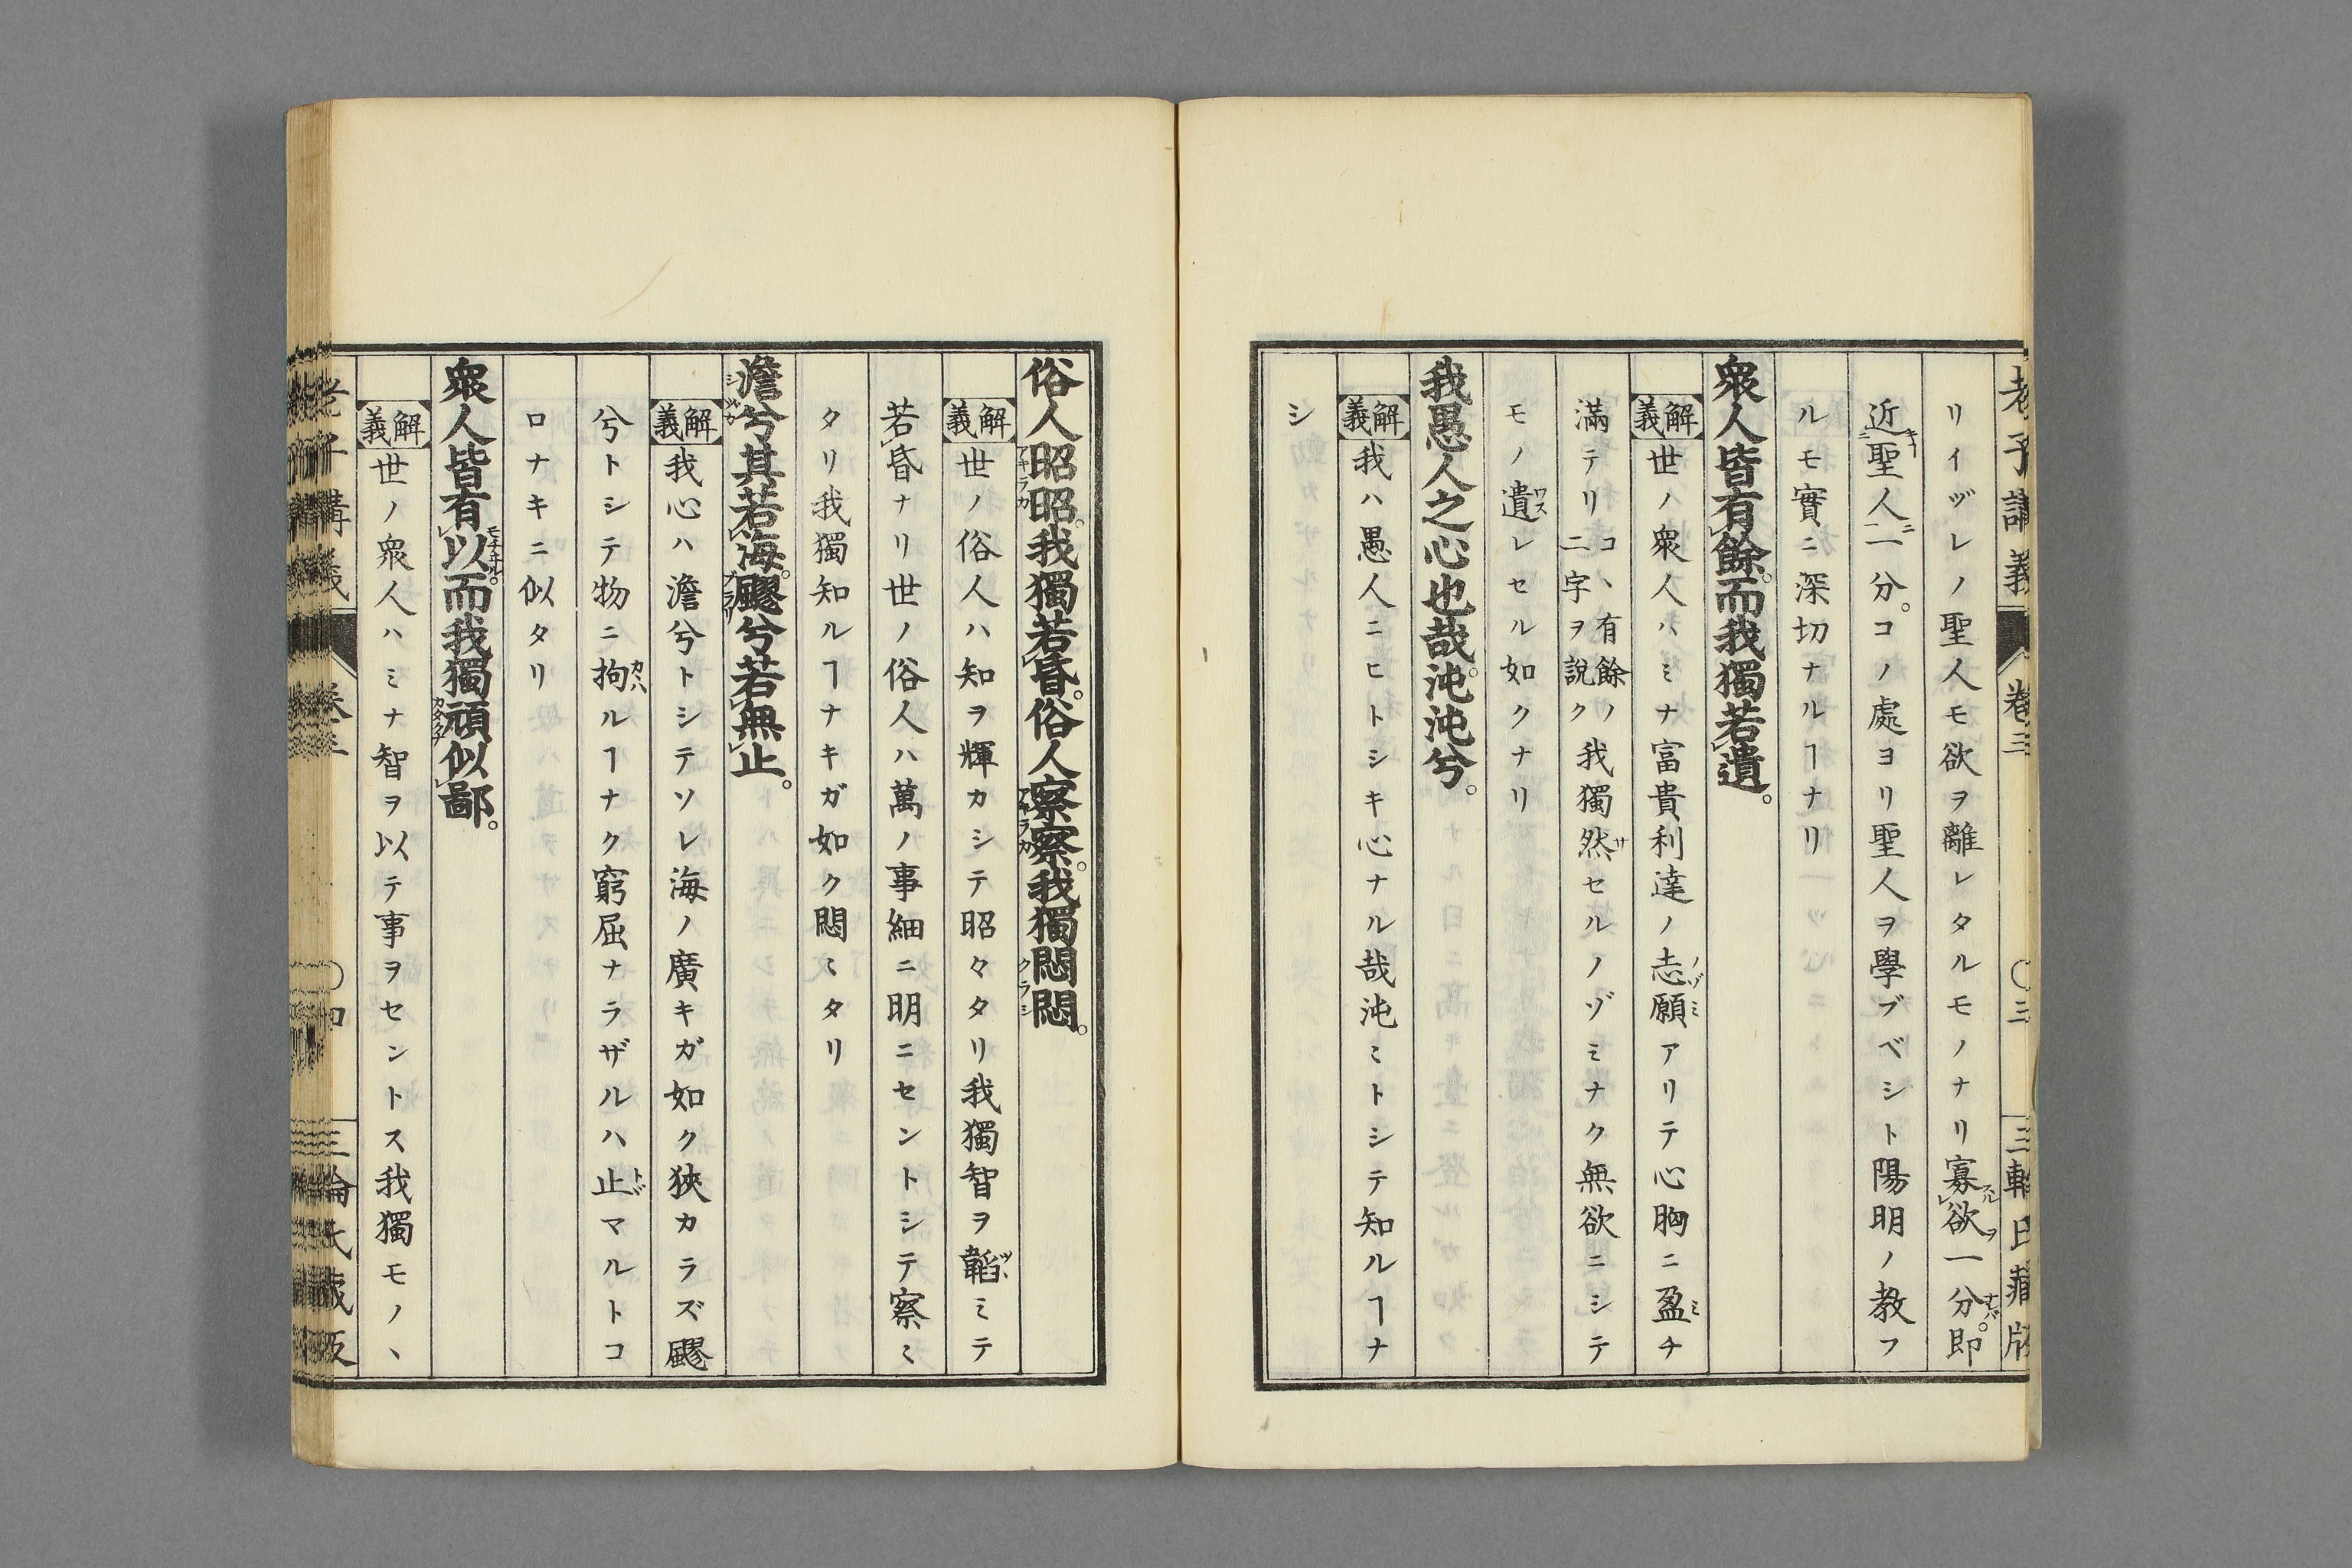 老子講義 卷三 〇三
リイヅレノ聖人モ欲ヲ離レタルモノナリ寡欲一分。即
近聖人一分。コノ處ヨリ聖人ヲ學ブベシト陽明ノ教フ
ルモ實ニ深切ナルヿナリ
衆人皆有餘。而我獨若遺。
解義 世ノ衆人ハミナ富貴利達ノ志願アリテ心胸ニ盈チ
滿テリコヽ有餘ノ二字ヲ說ク我獨然セルノゾミナク無欲ニシテ
モノ遺レセル如クナリ
我愚人之心也哉。沌沌兮。
解義 我ハ愚人ニヒトシキ心ナル哉沌〻トシテ知ルヿナ
シ
俗人昭昭。我獨若昏。俗人察察。我獨悶悶。
解義 世ノ俗人ハ知ヲ輝カシテ昭々タリ我獨智ヲ韜ミテ
若昏ナリ世ノ俗人ハ萬ノ事細ニ明ニセントシテ察〻
タリ我獨知ルヿナキガ如ク悶〻タリ
澹兮其若海。飂兮若無止。
解義 我心ハ澹兮トシテソレ海ノ廣キガ如ク狹カラズ飂
兮トシテ物ニ拘ルヿナク窮屈ナラザルハ止マルトコ
ロナキニ似タリ
衆人皆有以。而我獨頑似鄙。
解義 世ノ衆人ハミナ智ヲ以テ事ヲセントス我獨モノヽ